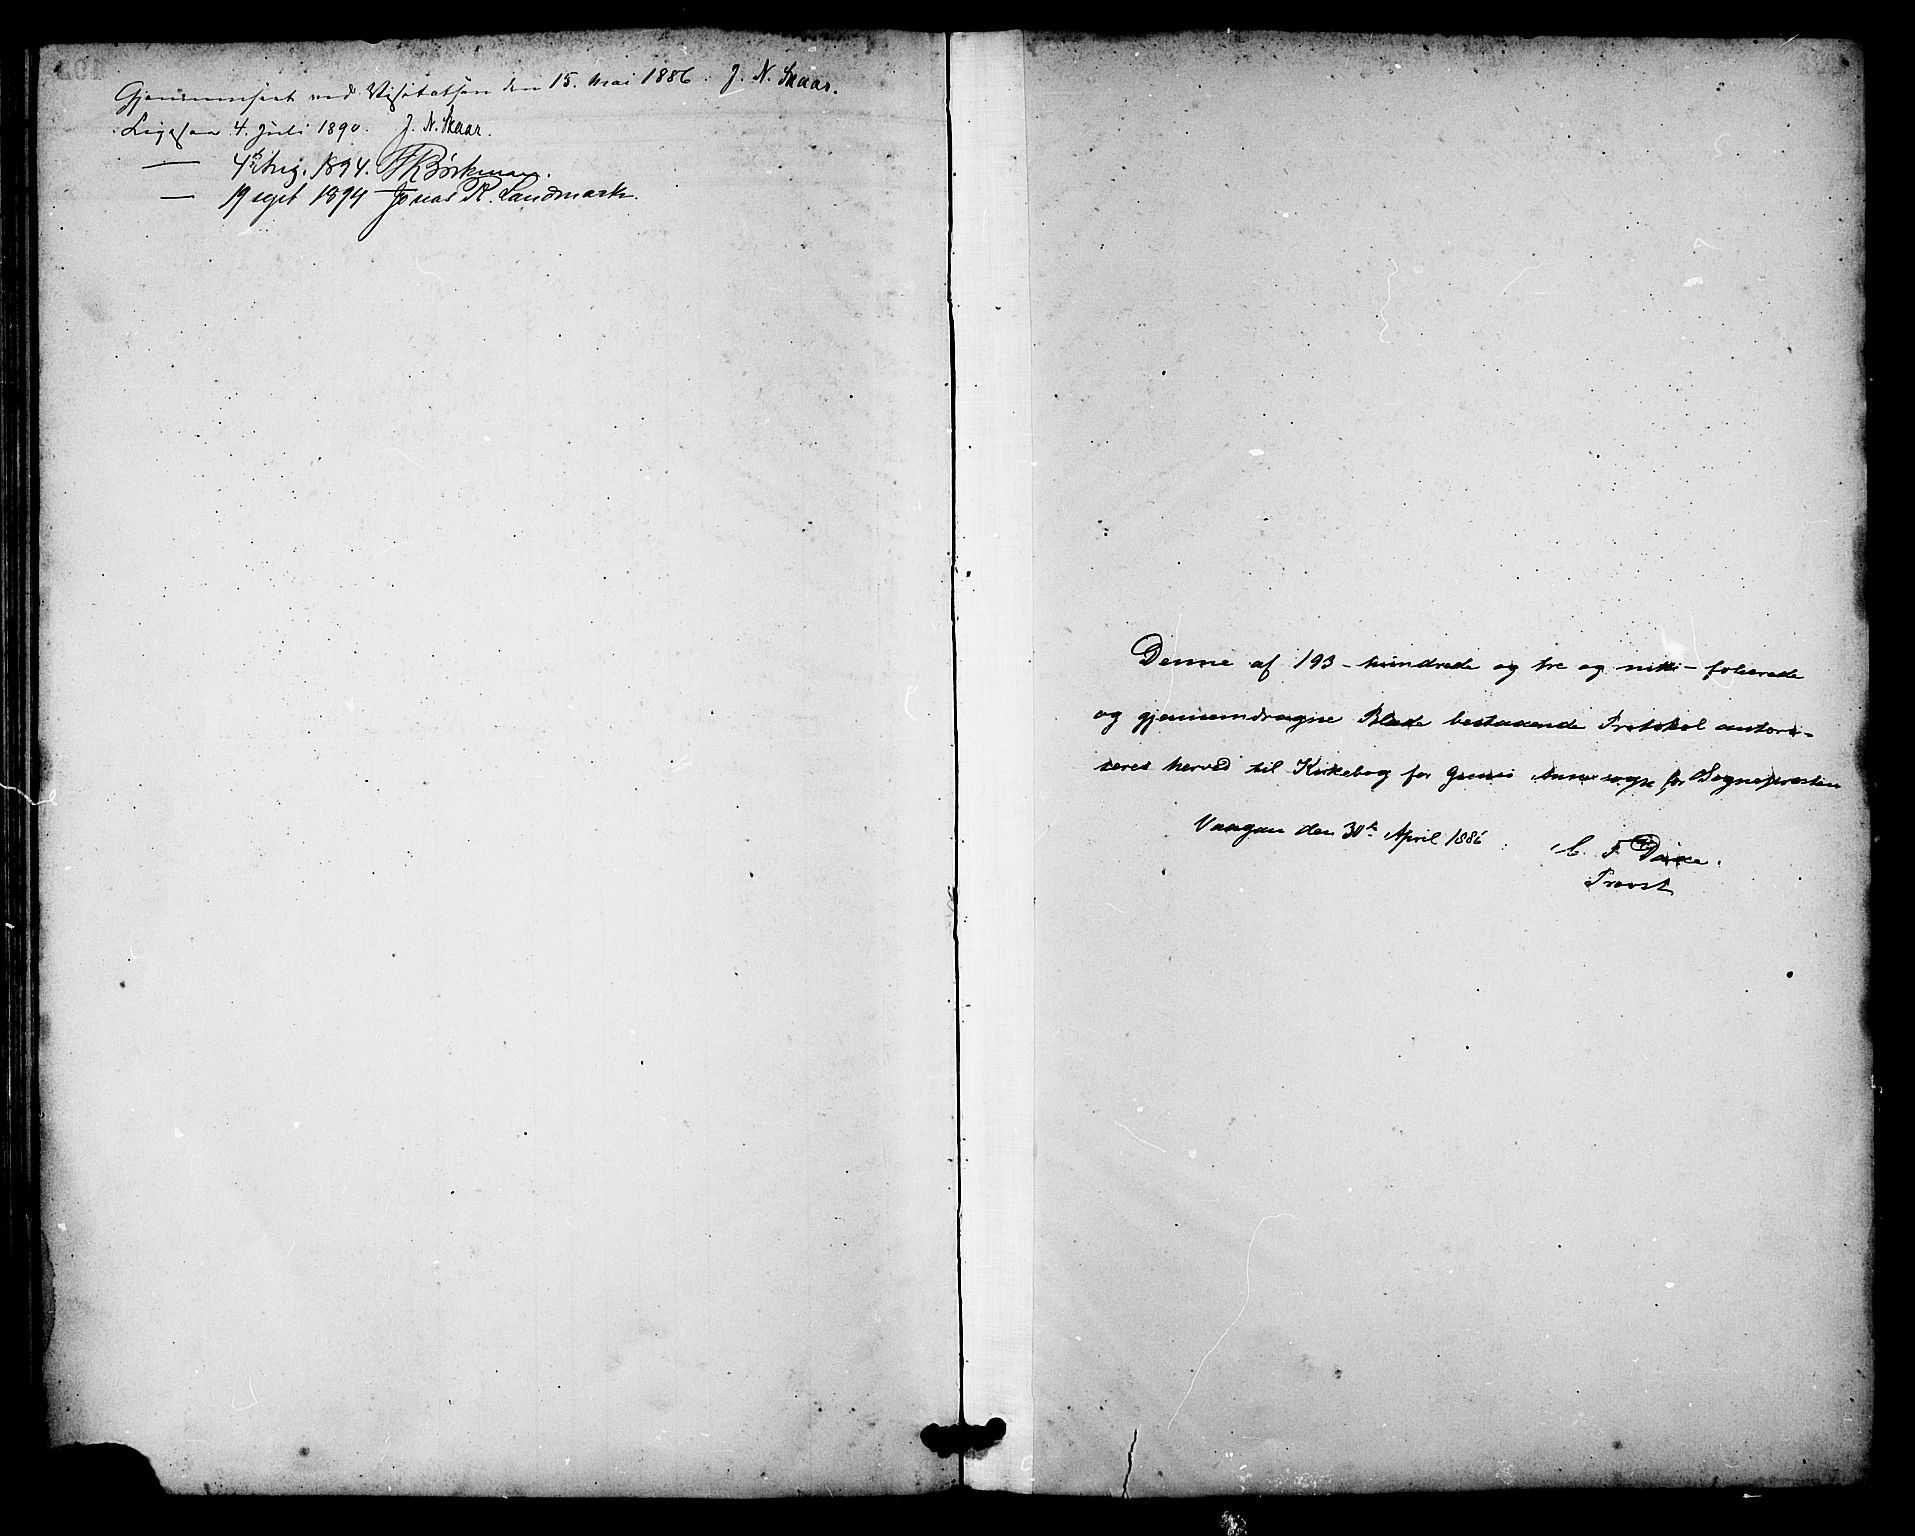 Gjennemseet ved Visitatsen den 15. Mai 1886. J. N. Skaar.
Ligesaa 4. Juli 1890. J. N. Skaar.
— 4de Aug. 1894. Bøckman.
— 19 sept 1899 Jonas R. Landmark.
Denne af 193 - hundrede og tre og nitti - folierede
og gjennemdragne Blade bestaaende Protokol autori-
seres herved til Kirkebog for Gimsø Annexsogn for Sognepræsten
Vaagan den 30te April 1886.
C. F.
Provst